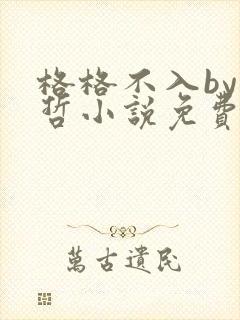 格格不入by
哲小説免費
萬古遺民